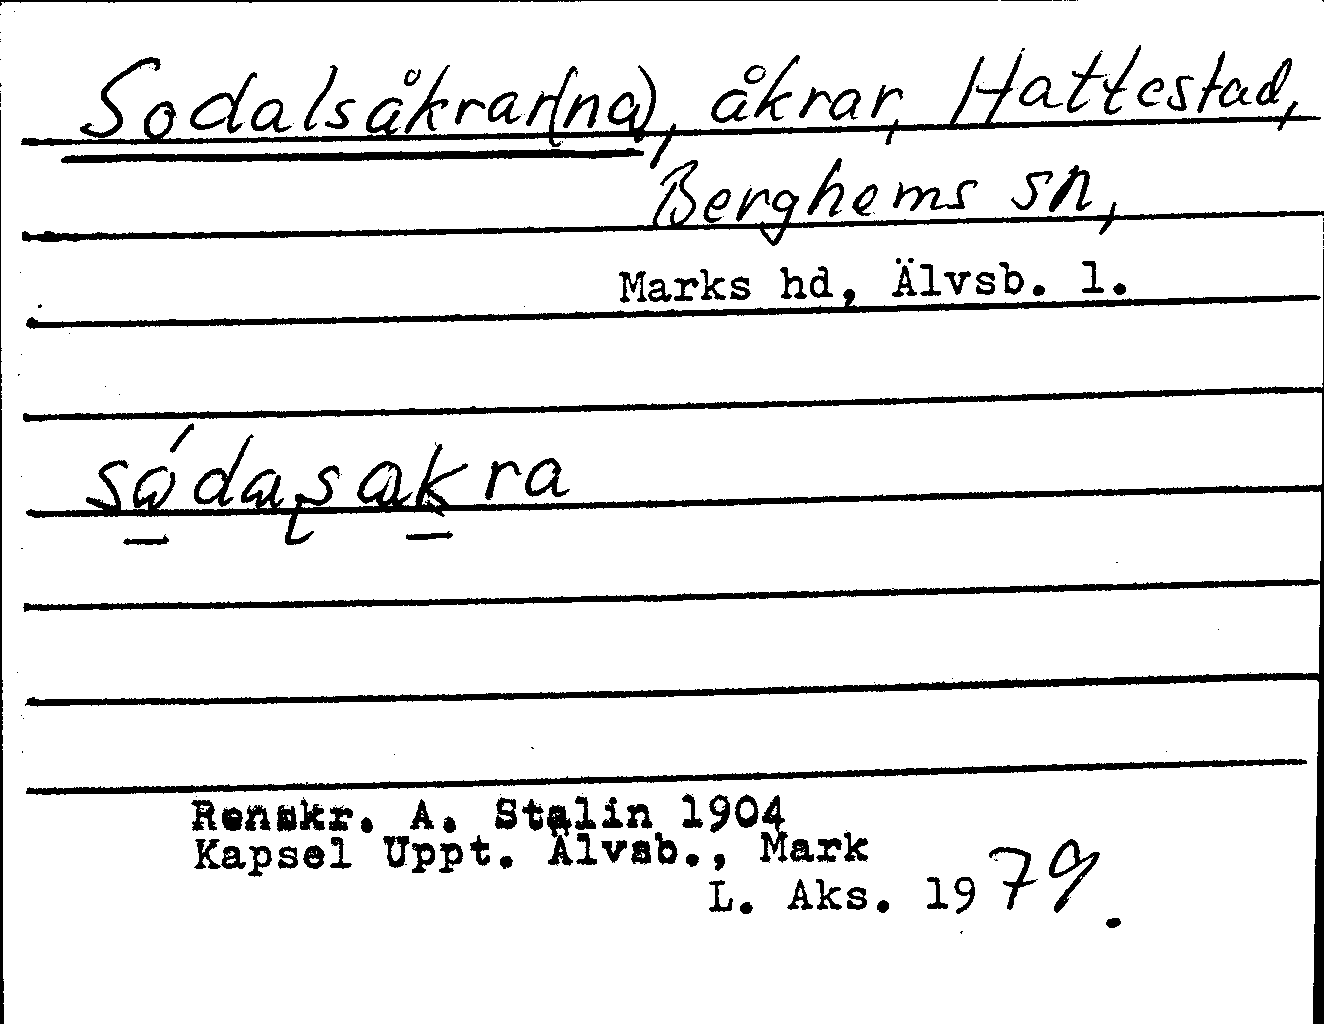 Sodalsåkrar(na), åkrar, Hattestad,
Berghems sn,
Marks hd, Älvsb. l.
Renskr. A. Stalin 1904
Kapsel Uppt. Älvsb., Mark
L. Aks. 1979.